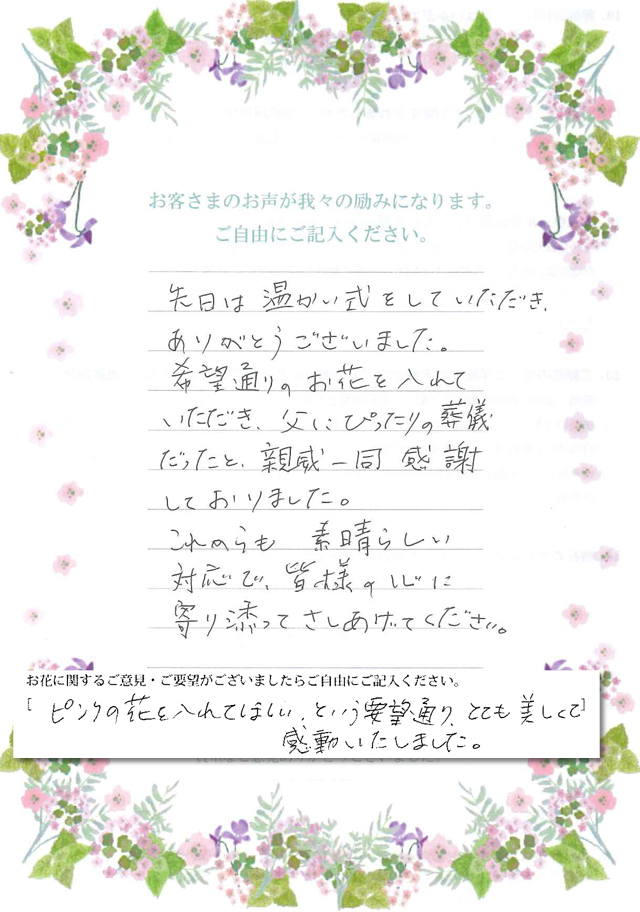 お客さまのお声が我々の励みになります。
ご自由にご記入ください。
先日は温かい式をしていただき、
ありがとうございました。
希望通りのお花を入れて
いただき、父にぴったりの葬儀
だったと、親戚一同感謝
しておりました。
これからも素晴らしい
対応で、皆様の心に
寄り添ってさしあげてください。
お花に関するご意見・ご要望がございましたらご自由にご記入ください。
[ピンクの花を入れてほしい、という要望通り、とても美しくて]
感動いたしました。